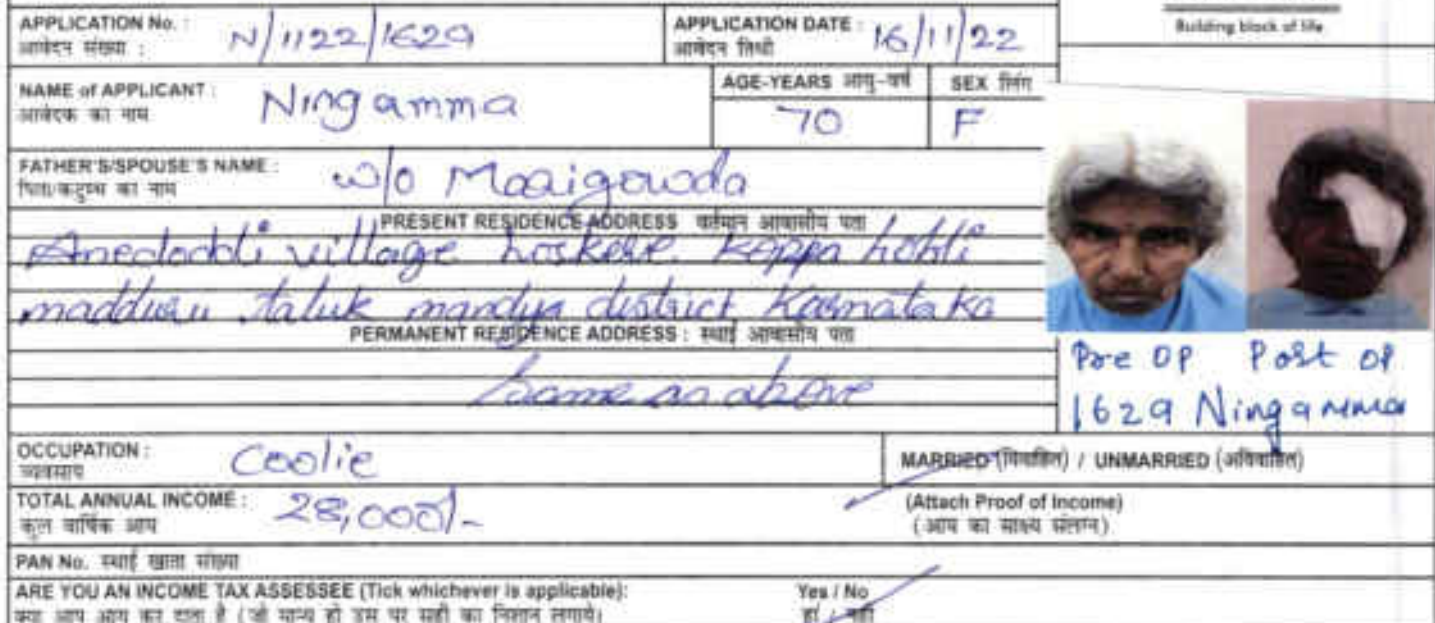 Building block of life
APPLICATION No. : N/1122/1629 APPLICATION DATE : 16/11/22
आवेदन संख्या : आवेदन तिथी
NAME of APPLICANT : Ningamma AGE-YEARS आयु-वर्ष SEX लिंग
आवेदक का नाम 70 F
FATHER'S/SPOUSE'S NAME : w/o
पिता/कटुम्ब का नाम
PRESENT RESIDENCE ADDRESS वर्तमान आवासीय पता
village hoskere Koppa hobli
taluk mandya district Karnataka
PERMANENT RESIDENCE ADDRESS : स्थाई आवासीय पता
Same as above
Pre OP Post OP
1629 Ningamma
OCCUPATION : Coolie MARRIED (विवाहित) / UNMARRIED (अविवाहित)
व्यवसाय
TOTAL ANNUAL INCOME : 28,000/- (Attach Proof of Income)
कुल वार्षिक आय (आय का साक्ष्य संलग्न)
PAN No. स्थाई खाता संख्या
ARE YOU AN INCOME TAX ASSESSEE (Tick whichever is applicable): Yes / No
क्या आप आय कर दाता है (जो मान्य हो उस पर सही का निशान लगाये) हां / नहीं